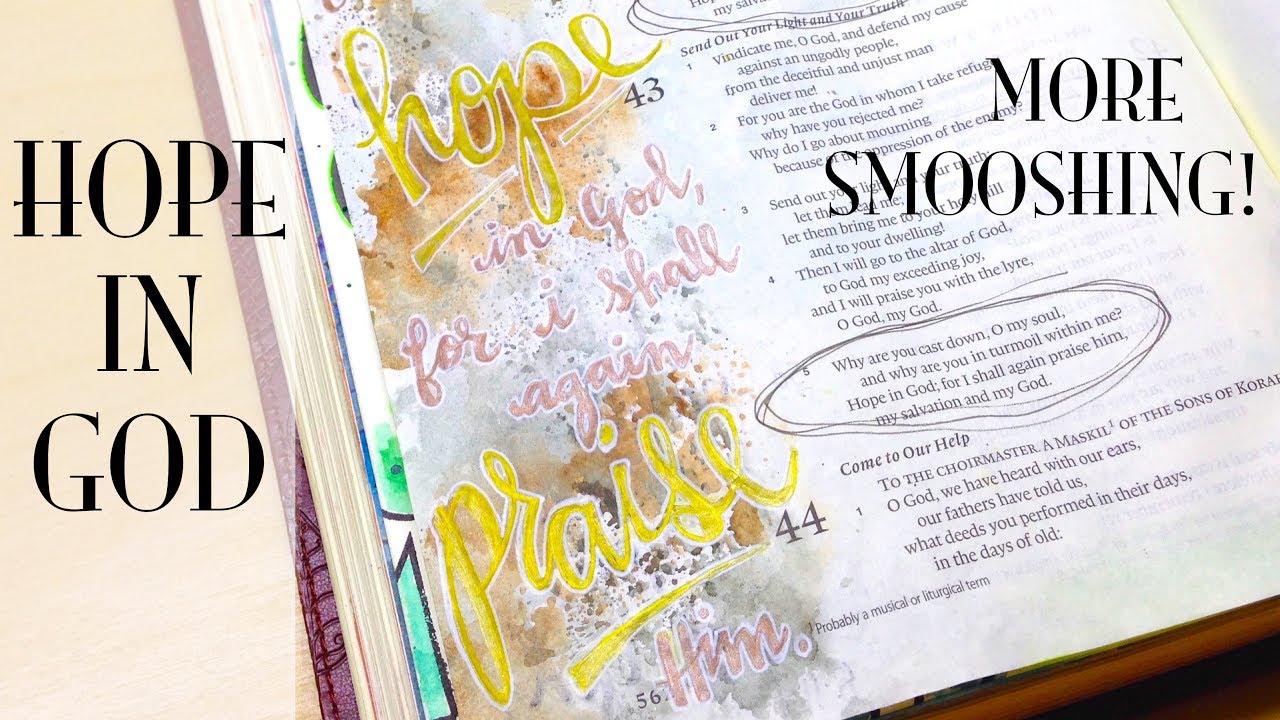 HOPE
IN
GOD
MORE
SMOOSHING!
hope
in God,
for i shall
again
praise
Him.
my salva
Send Out Your Light and Your Truth
43
1 Vindicate me, O God, and defend my cause
against an ungodly people,
from the deceitful and unjust man
deliver me!
2 For you are the God in whom I take refuge
why have you rejected me?
Why do I go about mourning
because of the oppression of the enemy?
3 Send out your light and your truth;
let them
let them bring me to your holy hill
and to your dwelling!
4 Then I will go to the altar of God,
to God my exceeding joy,
and I will praise you with the lyre,
O God, my God.
5 Why are you cast down, O my soul,
and why are you in turmoil within me?
Hope in God; for I shall again praise him,
my salvation and my God.
Come to Our Help
TO THE CHOIRMASTER. A MASKIL¹ OF THE SONS OF KORAH
44
1 O God, we have heard with our ears,
our fathers have told us,
what deeds you performed in their days,
in the days of old:
1 Probably a musical or liturgical term
56